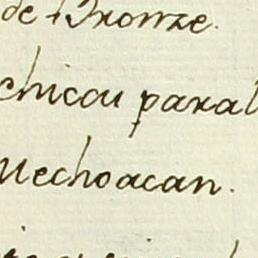 de Bronze.
chicou paral
Mechoacan.